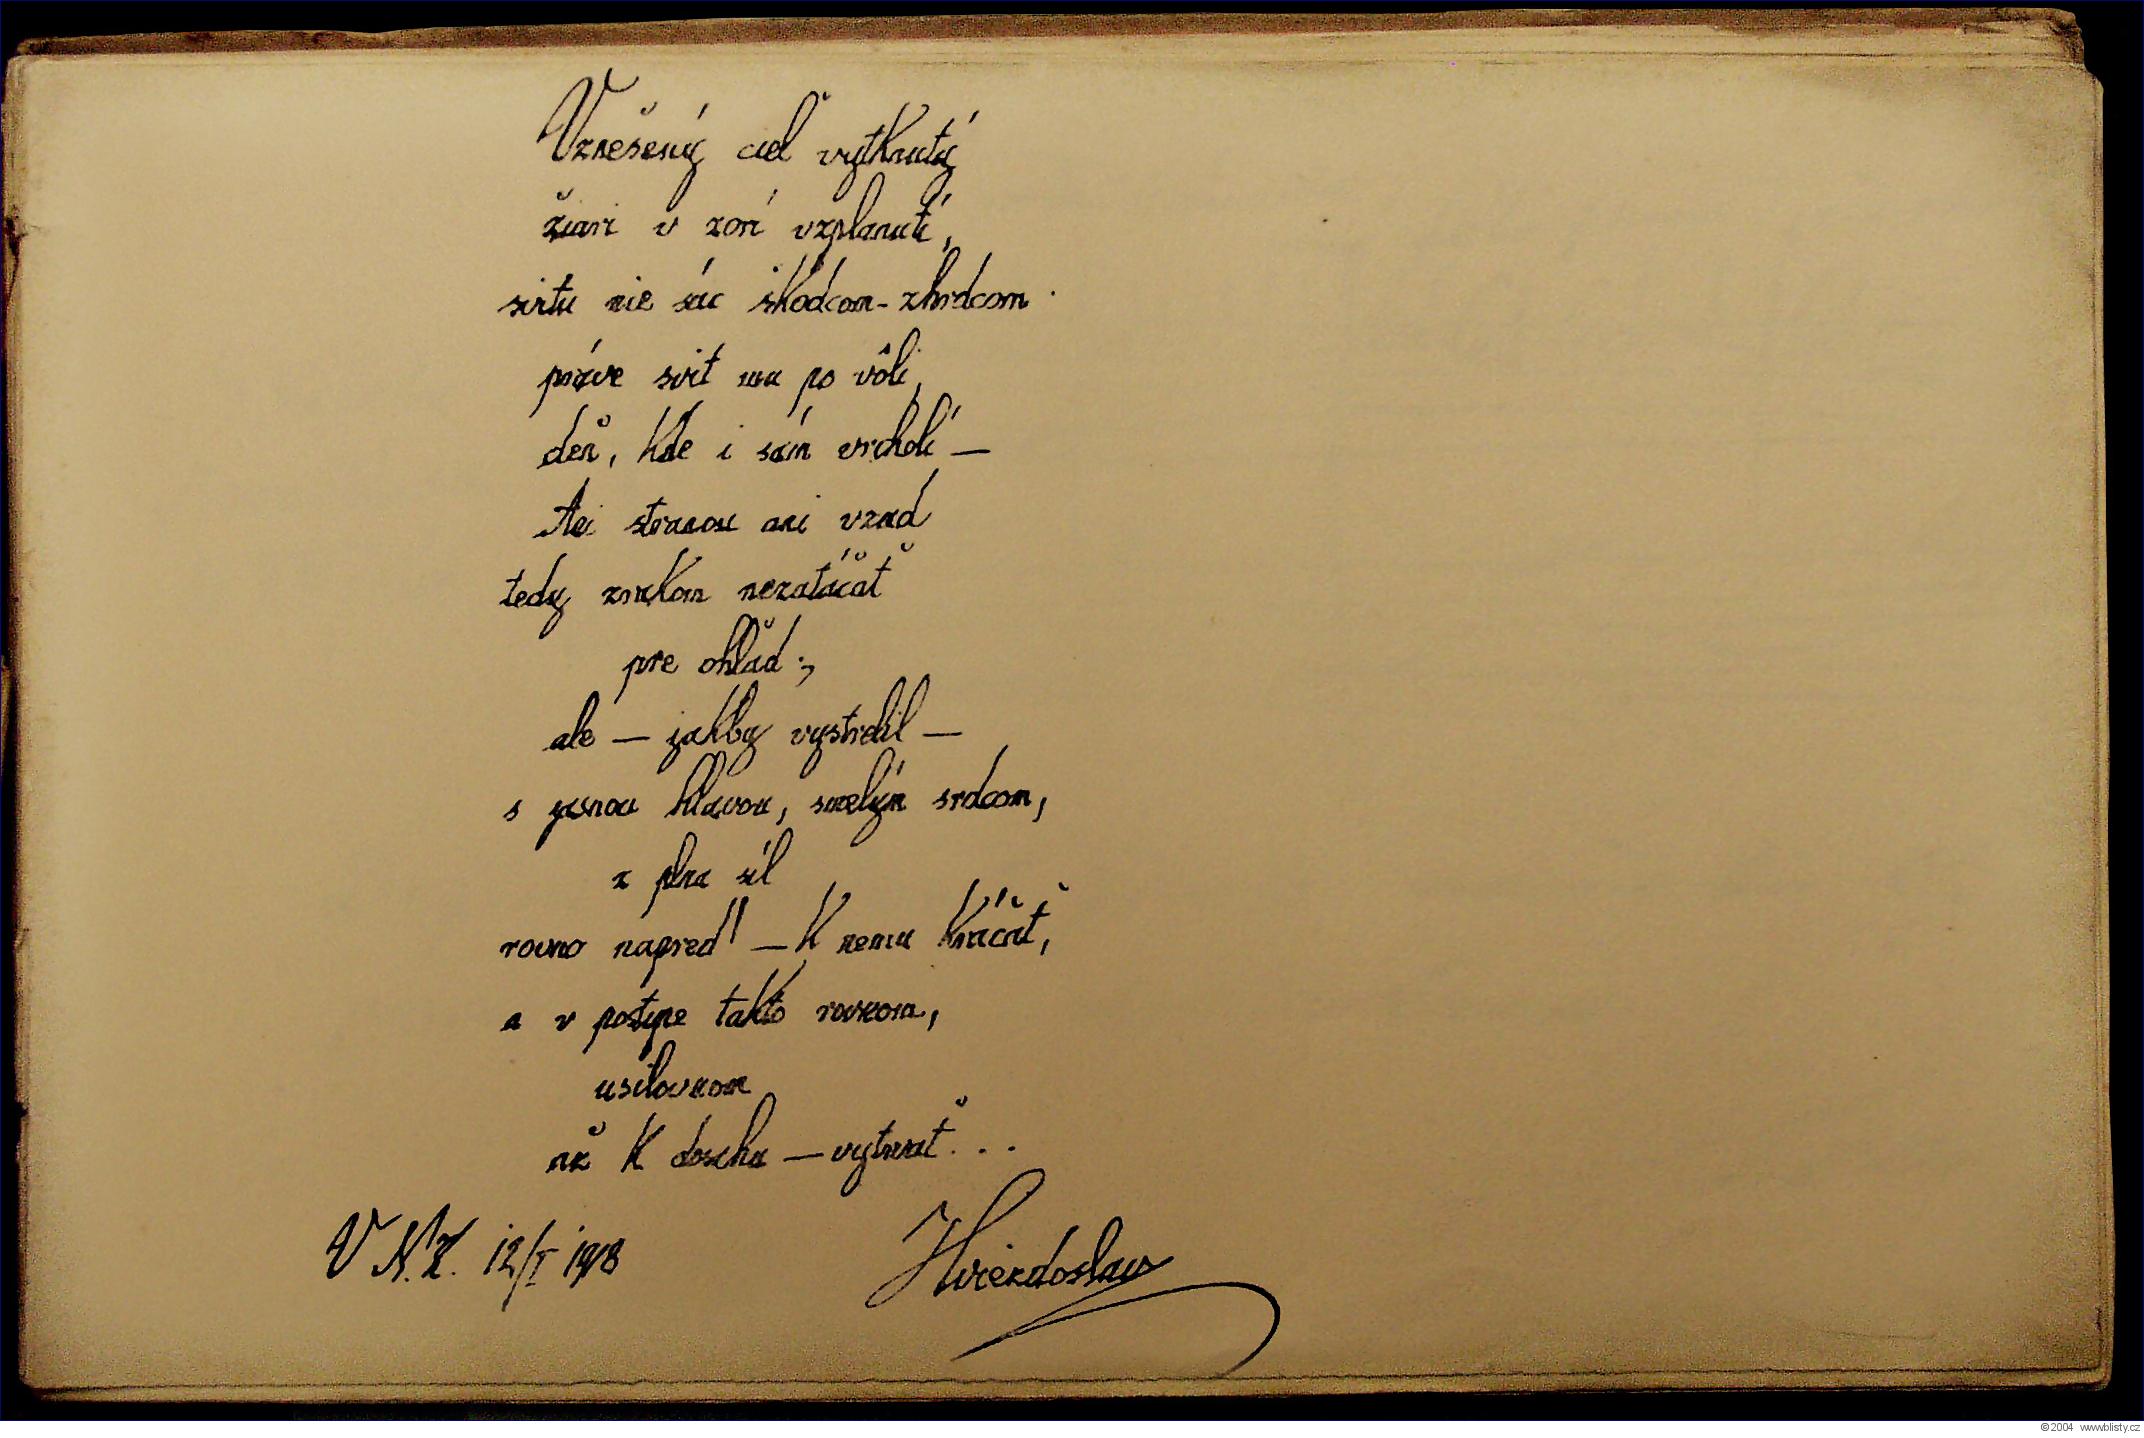 Vznešený cieľ vytknutý
žiari v zorí vzplanutí,
svitu nie súc škodcom-zhrdcom
práve svit mu po vôli,
deň, kde i sám vrcholí —
Ani stranou ani vzad
tedy zrakom nezatáčať
pre ohľad;
ale — jakby vystrelil —
s jasnou hlavou, smelým srdcom,
z plna síl
rovno napred! — K nemu kráčať,
a v postupe takto rovnom,
usilovnom
až k dosahu — vytrvať...
V N.K. 12/I 1918
Hviezdoslav
©2004 www.blisty.cz